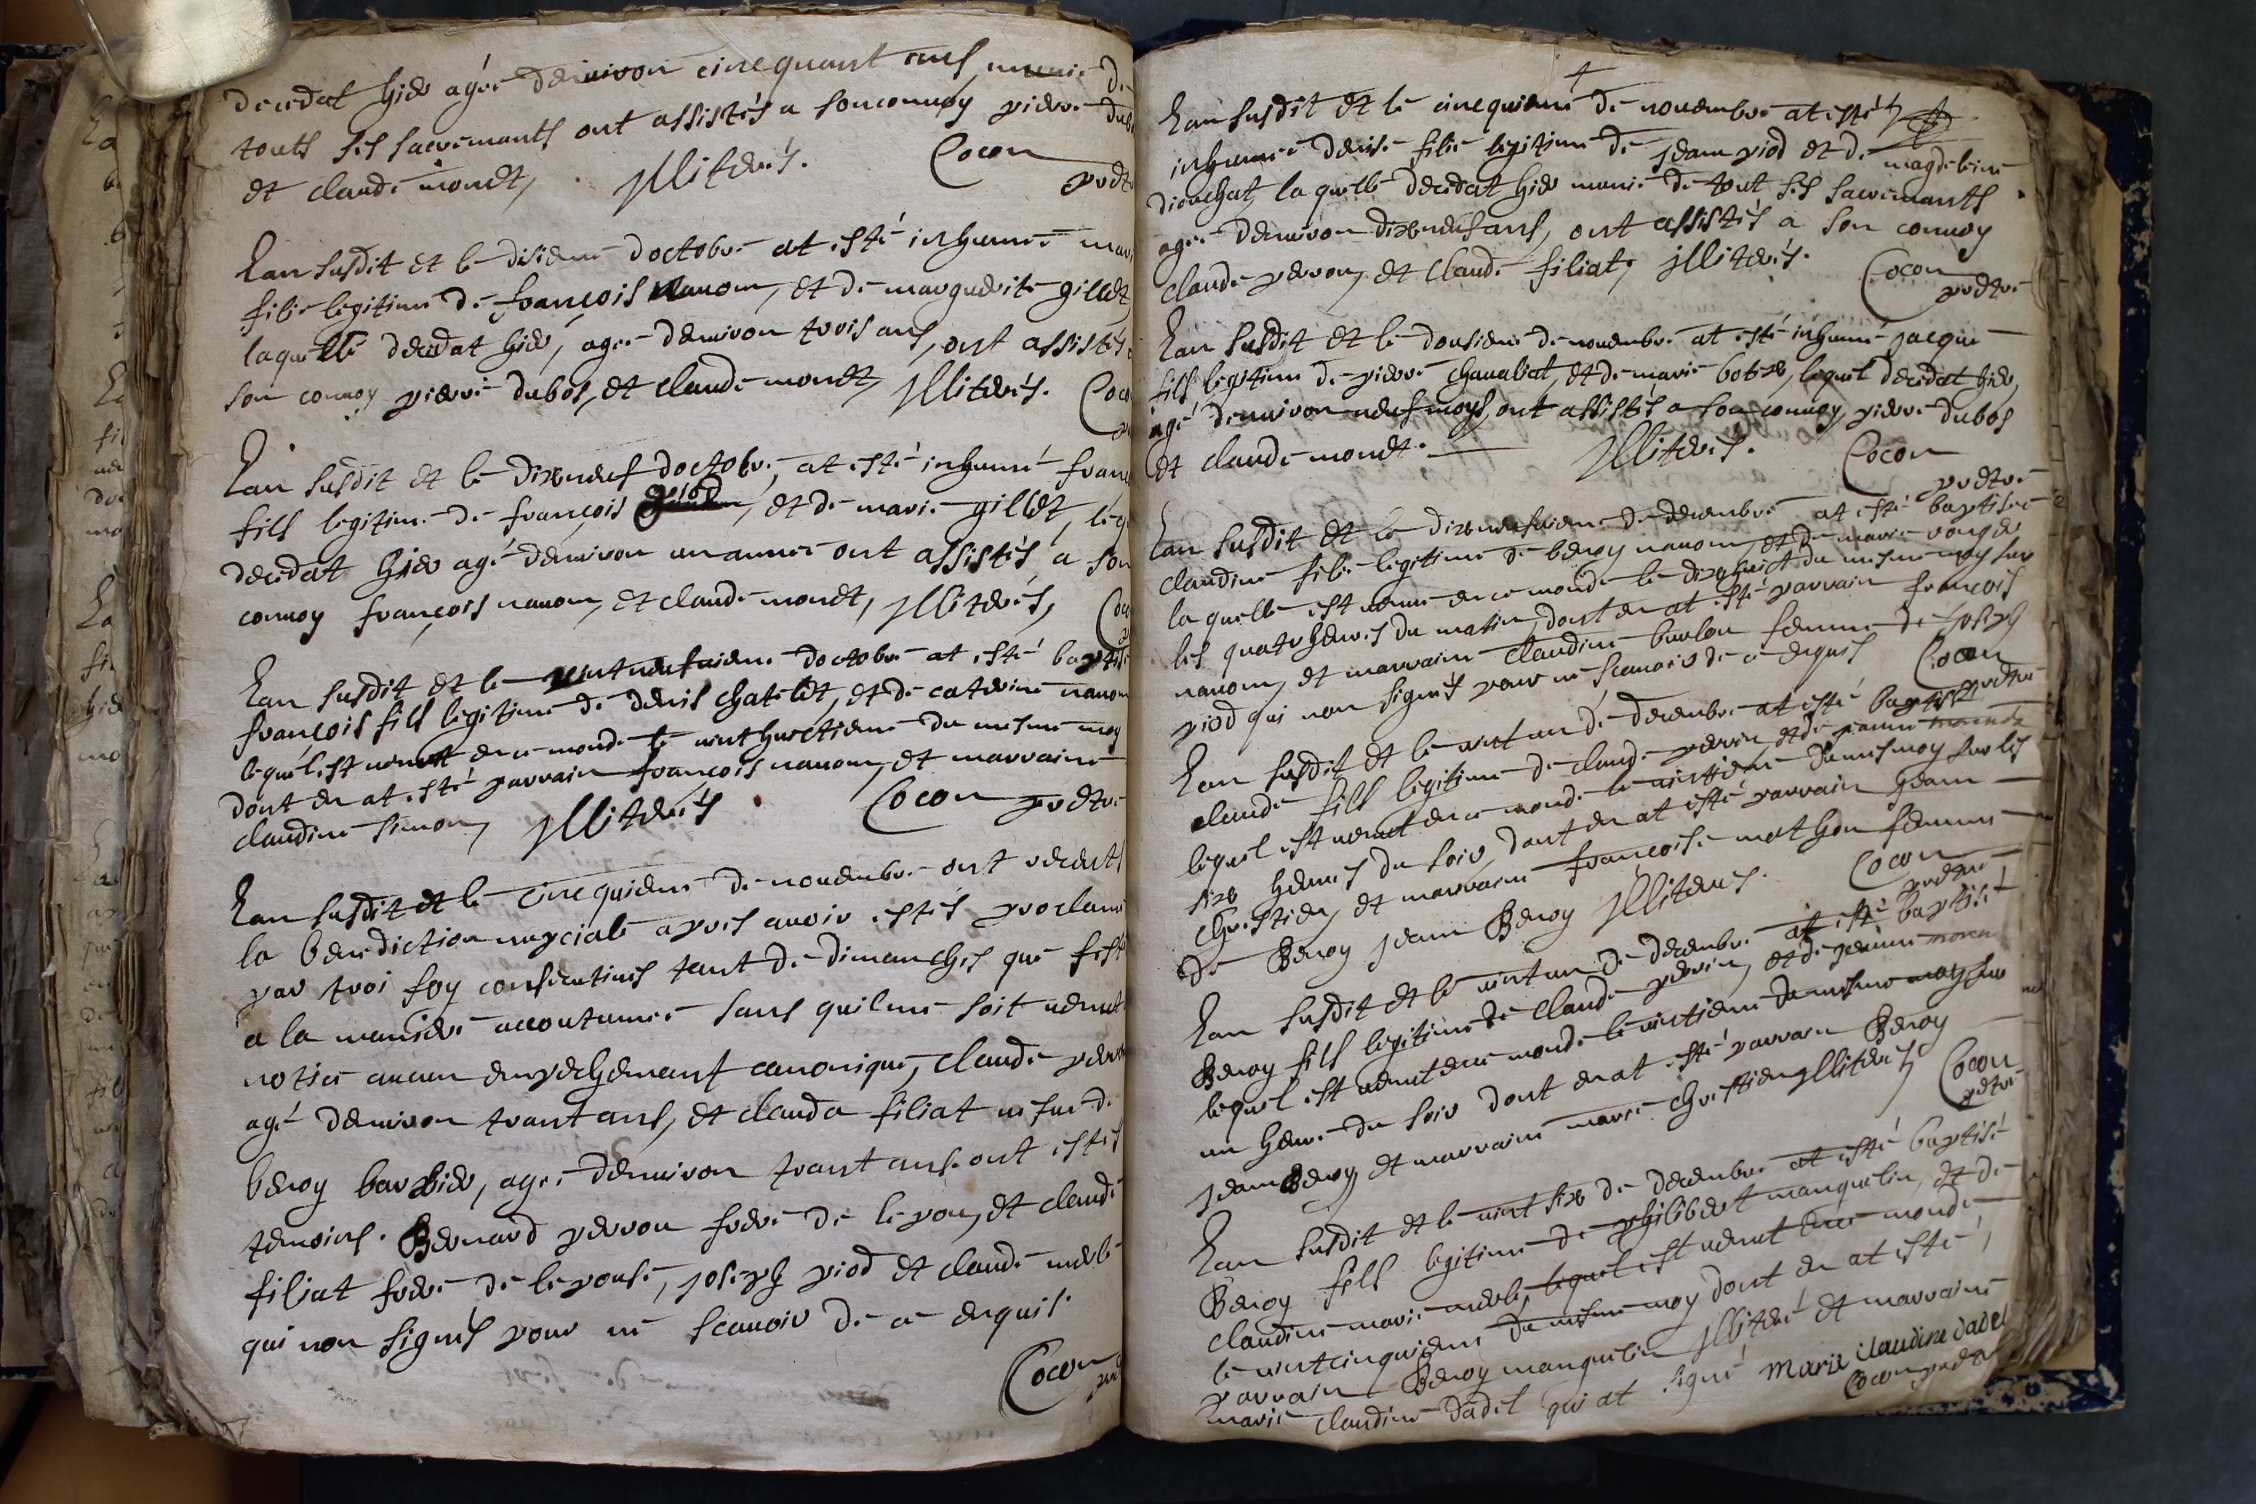 decedat hier agée denviron cinequant ans munie de
touts ses sacremants ont assistés a son convoy pierre dub
et claude monet, illiterés. Cocon
prdtr
Lan susdit et le disieme doctobre at esté inhumée mari
filie legitime de françois nanom, et de marguerite gillet
laquelle decedat hier, agée denviron trois ans, ont assistés
son convoy pierre dubos, et claude monet, illiterés. Coco
Lan susdit et le dixneuf doctobre, at esté inhumé fran
fils legitime de françois piod, et de marie gillet, leq
decedat hier agé denviron un année ont assistés a son
convoy françois nanom, et claude monet, illiterés, Coco
Lan susdit et le vintneufuieme doctobre at esté baptisé
françois fils legitime de denis chatelet, et de caterine nanom
lequel est venut en ce monde le vinthuictieme du mesme moy
dont en at esté parrain françois nanom, et marraine
claudine simon, illiterés Cocon prdtre
Lan susdit et le cinequieme de novembre ont receuts
la benediction nupciale apres avoir estés proclamé
par troi foy consecutives tant de dimanches que fest
a la maniere accoutumée sans quil me soit venut
notice aucun empechemant canonique, claude perron
agé denviron trant ans, et clauda filiat vefue de
benoy barbier, agée denviron trant ans. ont estés
temoins. Bernard perron frere de lepou, et claude
filiat frere de lepouse, joseph piod et claude merle
qui non signés pour ne scauoir de ce enquis.
Cocon
Lan susdit et le cinequieme de novembre at esté
inhumée denise filie legitime de jeam piod et de magdeleine
diochat, la quelle decedat hier munie de tout ses sacremants
agée denviron dixneuf ans, ont assistés a son convoy
claude perron, et claude filiat, illiterés. Cocon
prdtre
Lan susdit et le dousieme de novembre at esté inhumé jacque
fils legitime de pierre chanaliat, et de marie botex, lequel decedat hier,
agé denviron neuf moys, ont assistés a son convoy, pierre dubos
et claude monet. illiterés. Cocon
prdtre
Lan susdit et le dixneufuieme de decembre at esté baptisée
claudine filie legitime de benoy nanom, et de marie ronger
la quelle est venue en ce monde le dixhuict du mesme moy sur
les quatr heures du matin, dont en at esté parrain françois
nanom, et marraine claudine burlon femme de joseph
piod qui non signés pour ne scauoir de ce enquis Cocon
prdtre
Lan susdit et le vint un de decembre at esté baptisé
claude fils legitime de claude perrin, et de jeanne
lequel est venut en ce monde le vintieme du mes moy sur les
six heures du soir, dont en at esté parrain jeam
chrestien, et marraine françoise mathon femme
de Benoy jeam Benoy illiterés. Cocon
prdtre
Lan susdit et le vint un de decembre at esté baptisé
Benoy fils legitime de claude perrin, et de jeanne
lequel est venut en ce monde le vintieme du mesme moy sur
un heure du soir dont en at esté parrain Benoy
jeam Benoy et marraine marie chrestien illiterés Cocon
prdtre
Lan susdit et le vint six de decembre at esté baptisé
Benoy fils legitime de philibert manquelin, et de
claudine marie merle, lequel est venut en ce monde
le vintcinquieme du mesme moy dont en at esté
parrain Benoy manquelin illiteré et marraine
marie claudine dadel qui at signé marie claudine dadel
Cocon prdtre